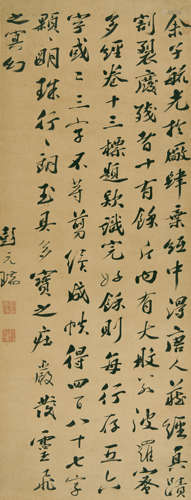 余于毓光於廠肆棄紙中得唐人藏經真蹟
割裂廢殘者十有餘片內有大般若波羅蜜
多經卷十三標題款識完好餘則每行存五六
字或二三字不等剪綴成帙得四百八十七字
顆顆明珠行行朗玉具多寶之莊嚴發靈飛
之冥幻
彭元瑞